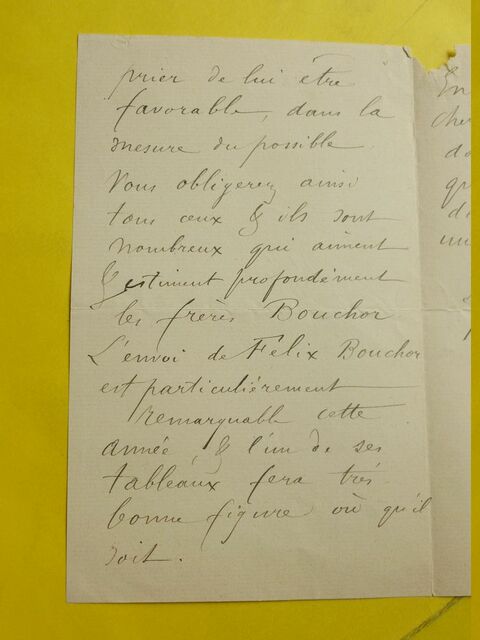 prier de lui être
favorable, dans la
mesure du possible.
Vous obligerez ainsi
tous ceux & ils sont
nombreux qui aiment
& estiment profondément
les frères Bouchor
L'envoi de Felix Bouchor
est particulièrement
remarquable cette
année, & l'un de ses
tableaux fera très
bonne figure où qu'il
soit.
En